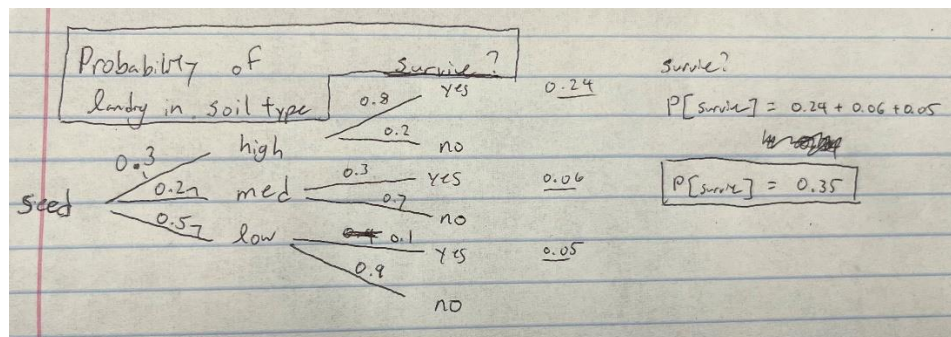 Probability of
landing in soil type
Survive?
seed
0.3 high
0.2 med
0.5 low
0.8 yes 0.24
0.2 no
0.3 yes 0.06
0.7 no
0.1 yes 0.05
0.9 no
survive?
P[survive] = 0.24 + 0.06 + 0.05
P[survive] = 0.35